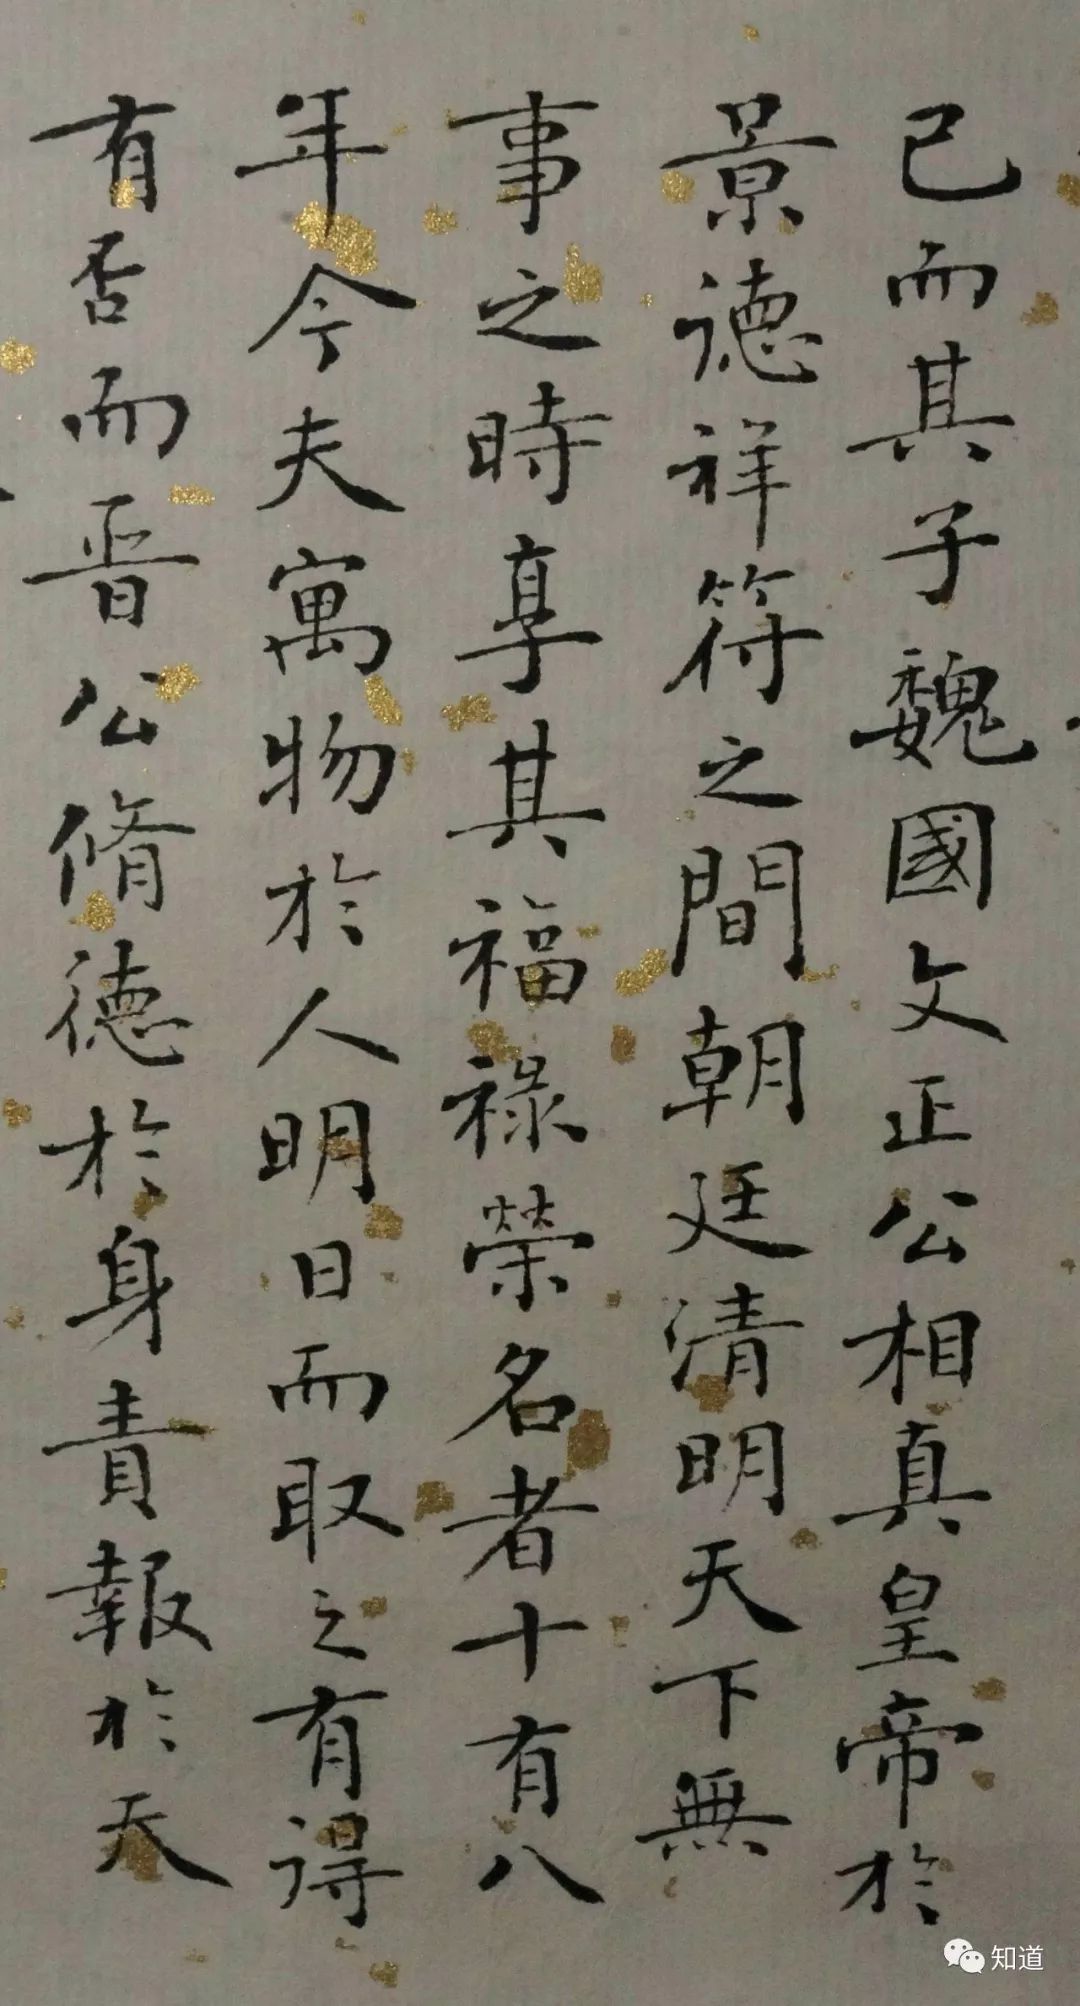 已而其子魏國文正公相真皇帝於
景德祥符之間朝廷清明天下無
事之時享其福祿榮名者十有八
年今夫寓物於人明日而取之有得
有否而晉公脩德於身責報於天
知道